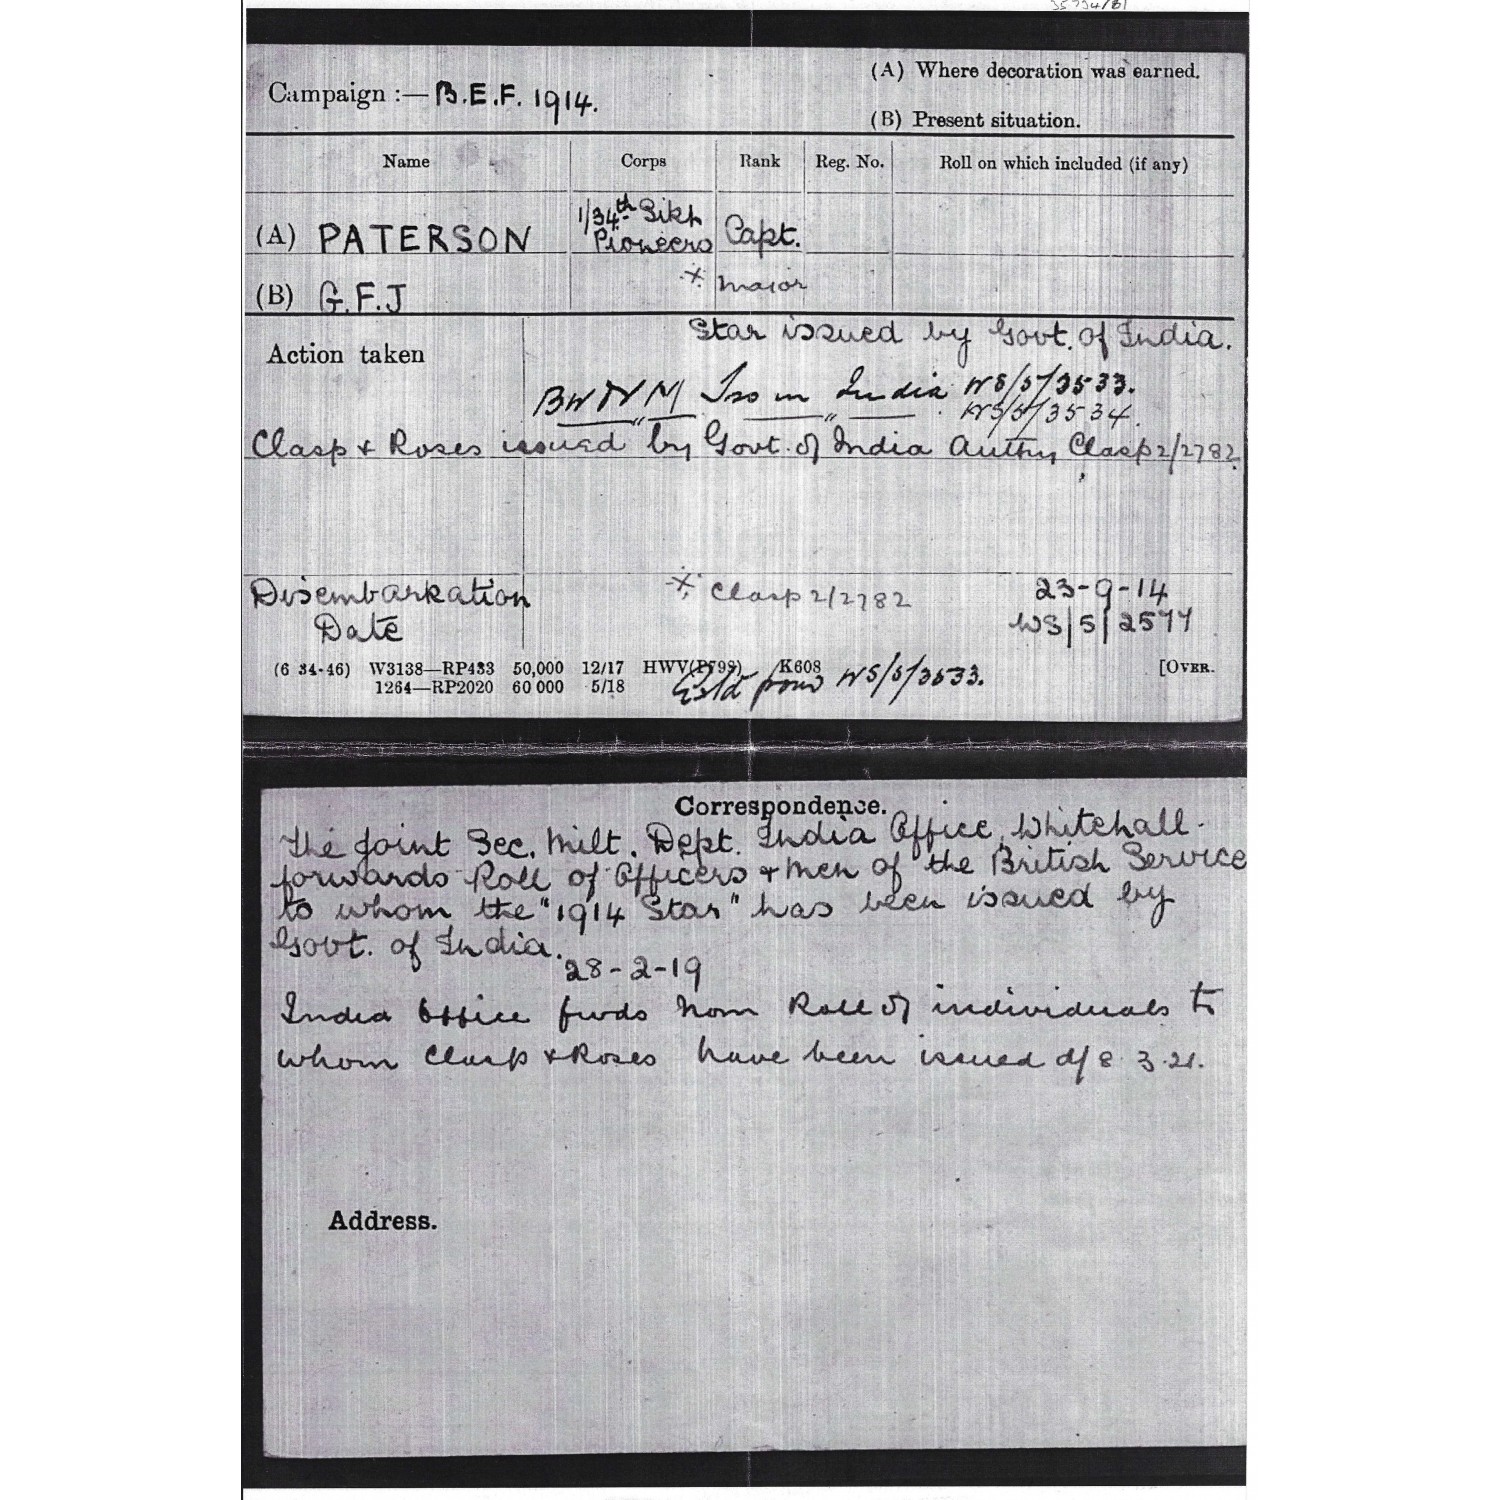 Campaign :— B.E.F. 1914.
(A) Where decoration was earned.
(B) Present situation.
Name Corps Rank Reg. No. Roll on which included (if any)
(A) PATERSON 1/34th Sikh Pioneers Capt.
(B) G.F.J * Major
Star issued by Govt. of India.
Action taken
BW & VM Iss in India WS/5/3533.
" " WS/5/3534.
Clasp & Roses issued by Govt. of India Authy Clasp 2/2782
Disembarkation * Clasp 2/2782 23-9-14
Date WS/5/2577
(6 34-46) W3138—RP433 50,000 12/17 HWV(P799) K608 [OVER.
1264—RP2020 60 000 5/18 WS/5/3533.
Correspondence.
The Joint Sec. Milt. Dept. India Office, Whitehall.
forwards Roll of Officers & Men of the British Service
to whom the "1914 Star" has been issued by
Govt. of India.
28-2-19
India Office fwds Nom Roll of individuals to
whom Clasp & Roses have been issued d/ 8.3.21.
Address.